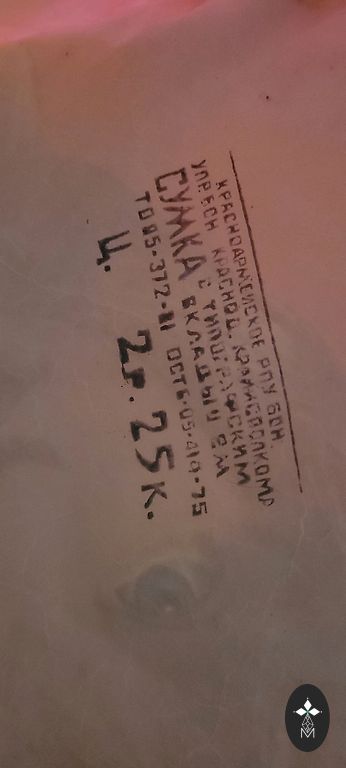 КРАСНОАРМЕЙСКОЕ РПУ БОН
УПР.БОН КРАСНОД. КРАЙИСПОЛКОМА
С ТИПОГРАФСКИМ
СУМКА ВКЛАДЫШЕМ
ТО 05-372-81 ОСТ6-05-414-75
Ц. 2р. 25к.